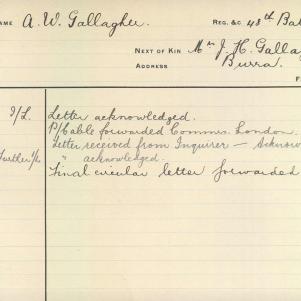 NAME A. W. Gallagher. REG. &C. 48th Bat
NEXT OF KIN Mr J. H. Galla
ADDRESS Burra.
I/L. Letter acknowledged.
P/Cable forwarded Commrs. London.
Letter received from Inquirer — Acknow
Further I/L " acknowledged.
Final circular letter forwarded